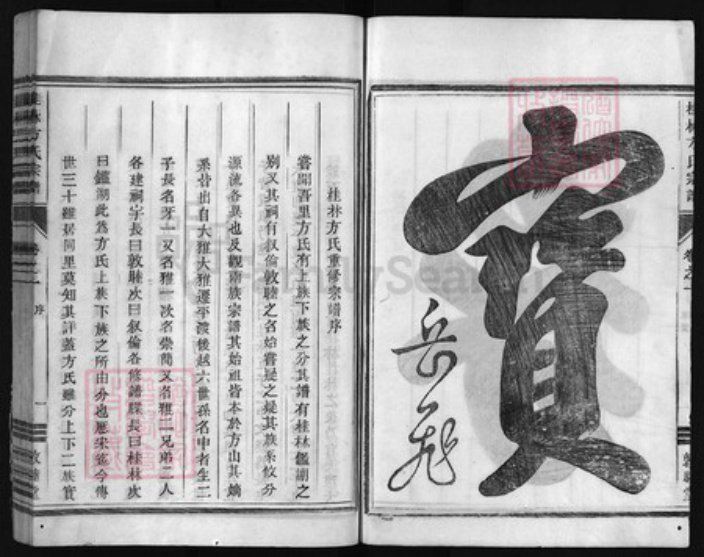 寶
岳飛
桂林方氏宗譜
卷之一
敦睦堂
桂林方氏重修宗譜序
嘗聞吾里方氏有上族下族之分其譜有桂林鑑湖之
別又其祠有叙倫敦睦之名始嘗疑之疑其族系攸分
源流各異也及觀兩族宗譜其始祖皆本於方山其嫡
系皆出自大雅大雅遷平渡後越六世孫名申者生二
子長名牙一又名雅一次名崇簡又名雅二兄弟二人
各建祠宇長曰敦睦次曰叙倫各修譜牒長曰桂林次
曰鑑湖此為方氏上族下族之所由分也歷宋迄今傳
世三十雖居同里莫知其詳蓋方氏雖分上下二族實
桂林方氏宗譜
卷之一
序
一
敦睦堂
FamilySearch